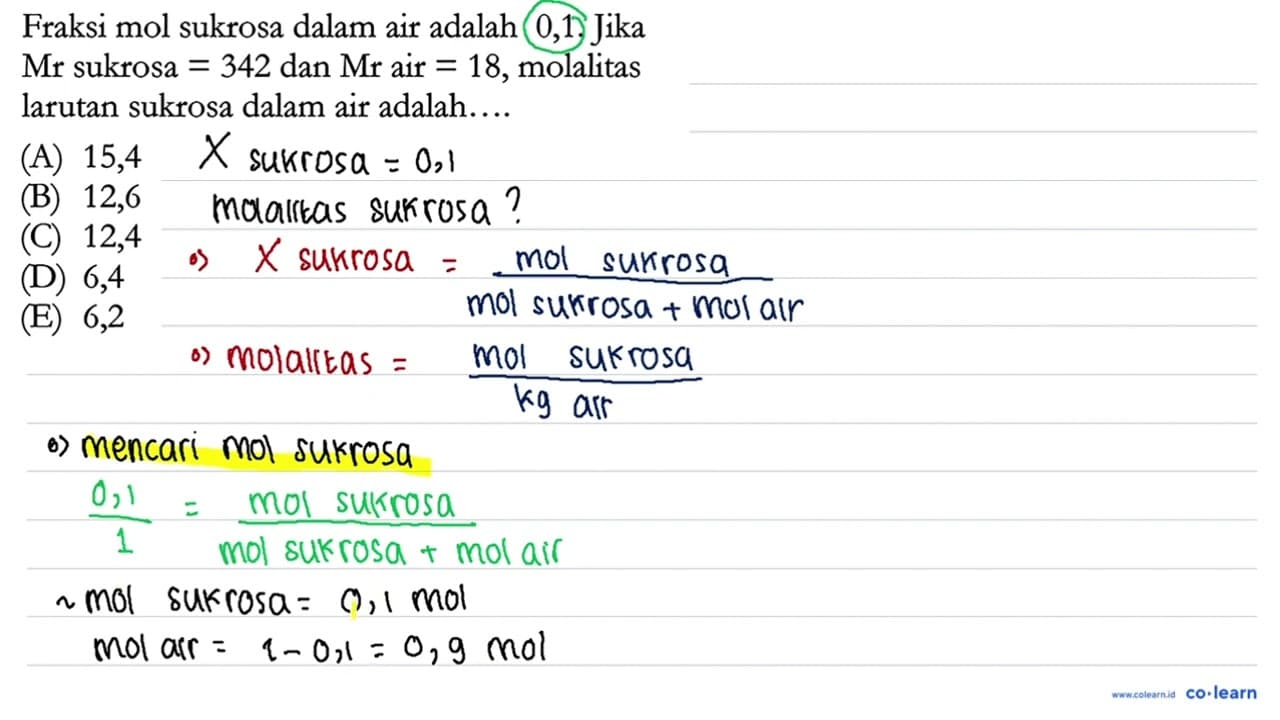 Fraksi mol sukrosa dalam air adalah 0,1. Jika
Mr sukrosa = 342 dan Mr air = 18, molalitas
larutan sukrosa dalam air adalah....
(A) 15,4
(B) 12,6
(C) 12,4
(D) 6,4
(E) 6,2
X sukrosa = 0,1
molalitas sukrosa ?
X sukrosa = mol sukrosa
mol sukrosa + mol air
molalitas = mol sukrosa
kg air
mencari mol sukrosa
0,1 = mol sukrosa
1 mol sukrosa + mol air
~ mol sukrosa = 0,1 mol
mol air = 1 - 0,1 = 0,9 mol
www.colearn.id co·learn